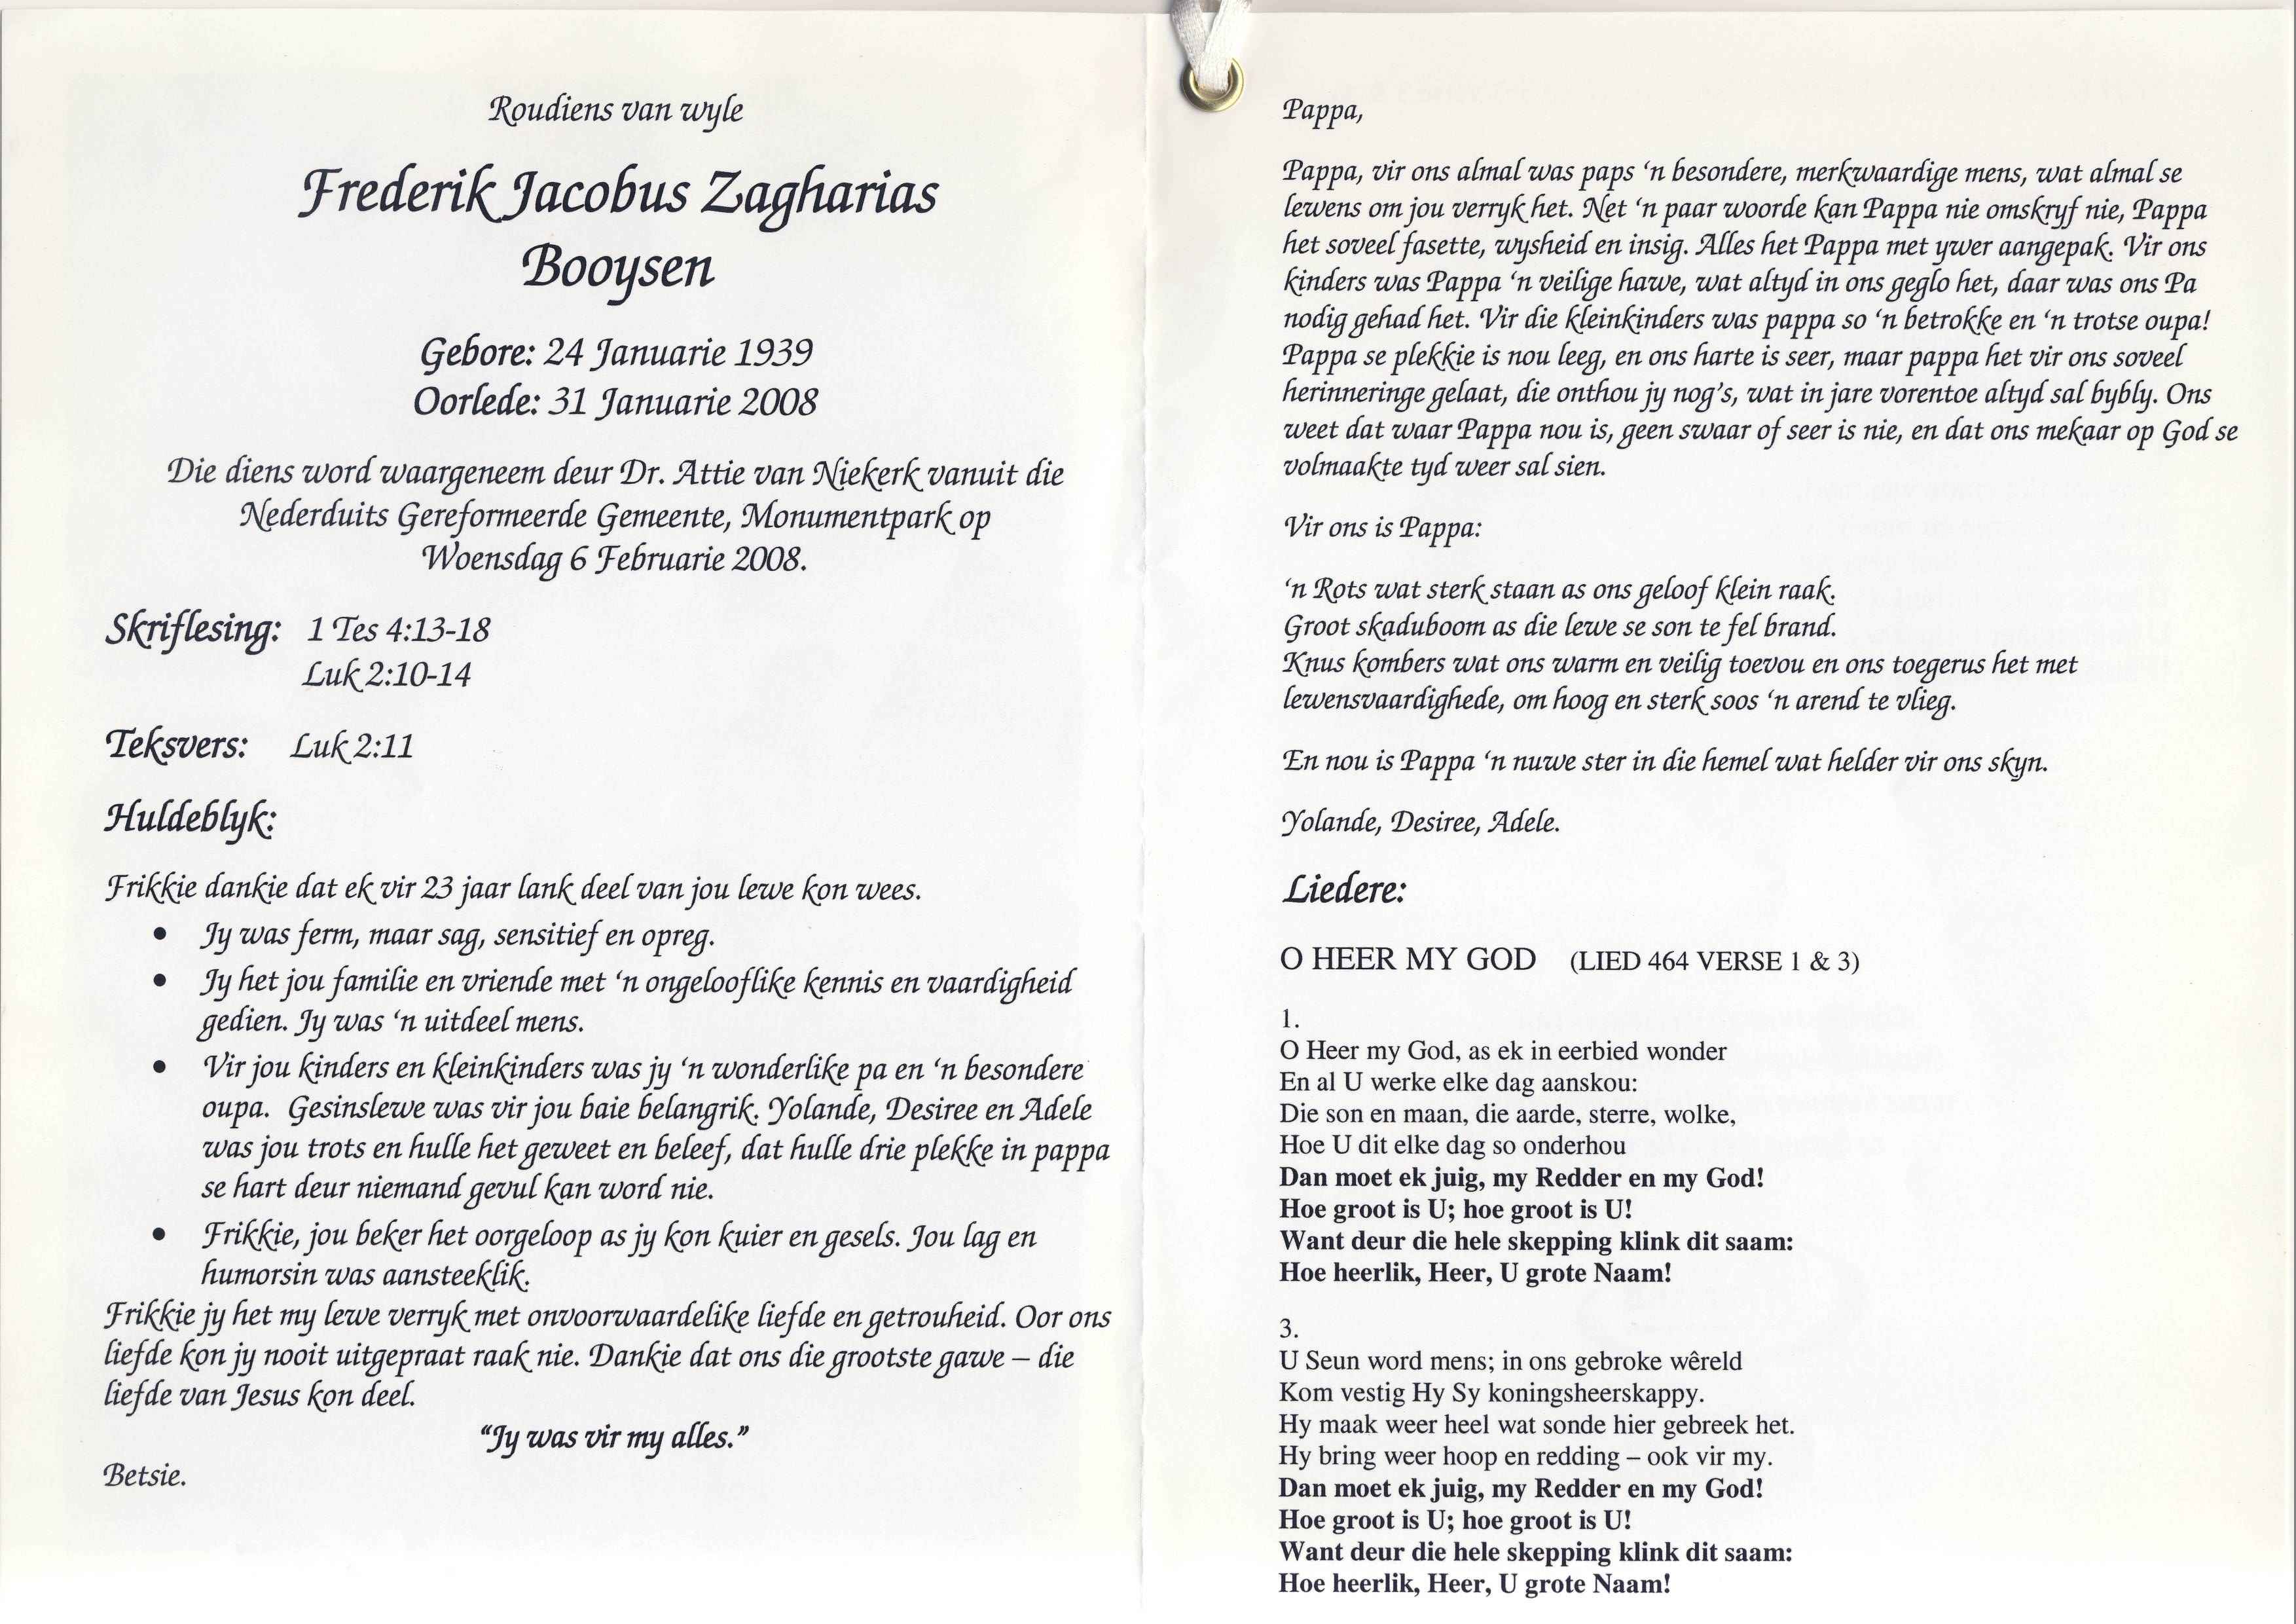 Roudiens van wyle
Frederik Jacobus Zagharias
Booysen
Gebore: 24 Januarie 1939
Oorlede: 31 Januarie 2008
Die diens word waargeneem deur Dr. Attie van Niekerk vanuit die
Nederduits Gereformeerde Gemeente, Monumentpark op
Woensdag 6 Februarie 2008.
Skriflesing: 1 Tes 4:13-18
Luk 2:10-14
Teksvers: Luk 2:11
Huldeblyk:
Frikkie dankie dat ek vir 23 jaar lank deel van jou lewe kon wees.
• Jy was ferm, maar sag, sensitief en opreg.
• Jy het jou familie en vriende met ‘n ongelooflike kennis en vaardigheid
gedien. Jy was ‘n uitdeel mens.
• Vir jou kinders en kleinkinders was jy ‘n wonderlike pa en ‘n besondere
oupa. Gesinslewe was vir jou baie belangrik. Yolande, Desiree en Adele
was jou trots en hulle het geweet en beleef, dat hulle drie plekke in pappa
se hart deur niemand gevul kan word nie.
• Frikkie, jou beker het oorgeloop as jy kon kuier en gesels. Jou lag en
humorsin was aansteeklik.
Frikkie jy het my lewe verryk met onvoorwaardelike liefde en getrouheid. Oor ons
liefde kon jy nooit uitgepraat raak nie. Dankie dat ons die grootste gawe – die
liefde van Jesus kon deel.
“Jy was vir my alles.”
Betsie.
Pappa,
Pappa, vir ons almal was paps ‘n besondere, merkwaardige mens, wat almal se
lewens om jou verryk het. Net ‘n paar woorde kan Pappa nie omskryf nie, Pappa
het soveel fasette, wysheid en insig. Alles het Pappa met ywer aangepak. Vir ons
kinders was Pappa ‘n veilige hawe, wat altyd in ons geglo het, daar was ons Pa
nodig gehad het. Vir die kleinkinders was pappa so ‘n betrokke en ‘n trotse oupa!
Pappa se plekkie is nou leeg, en ons harte is seer, maar pappa het vir ons soveel
herinneringe gelaat, die onthou jy nog’s, wat in jare vorentoe altyd sal bybly. Ons
weet dat waar Pappa nou is, geen swaar of seer is nie, en dat ons mekaar op God se
volmaakte tyd weer sal sien.
Vir ons is Pappa:
‘n Rots wat sterk staan as ons geloof klein raak.
Groot skaduboom as die lewe se son te fel brand.
Knus kombers wat ons warm en veilig toevou en ons toegerus het met
lewensvaardighede, om hoog en sterk soos ‘n arend te vlieg.
En nou is Pappa ‘n nuwe ster in die hemel wat helder vir ons skyn.
Yolande, Desiree, Adele.
Liedere:
O HEER MY GOD (LIED 464 VERSE 1 & 3)
1.
O Heer my God, as ek in eerbied wonder
En al U werke elke dag aanskou:
Die son en maan, die aarde, sterre, wolke,
Hoe U dit elke dag so onderhou
Dan moet ek juig, my Redder en my God!
Hoe groot is U; hoe groot is U!
Want deur die hele skepping klink dit saam:
Hoe heerlik, Heer, U grote Naam!
3.
U Seun word mens; in ons gebroke wêreld
Kom vestig Hy Sy koningsheerskappy.
Hy maak weer heel wat sonde hier gebreek het.
Hy bring weer hoop en redding – ook vir my.
Dan moet ek juig, my Redder en my God!
Hoe groot is U; hoe groot is U!
Want deur die hele skepping klink dit saam:
Hoe heerlik, Heer, U grote Naam!